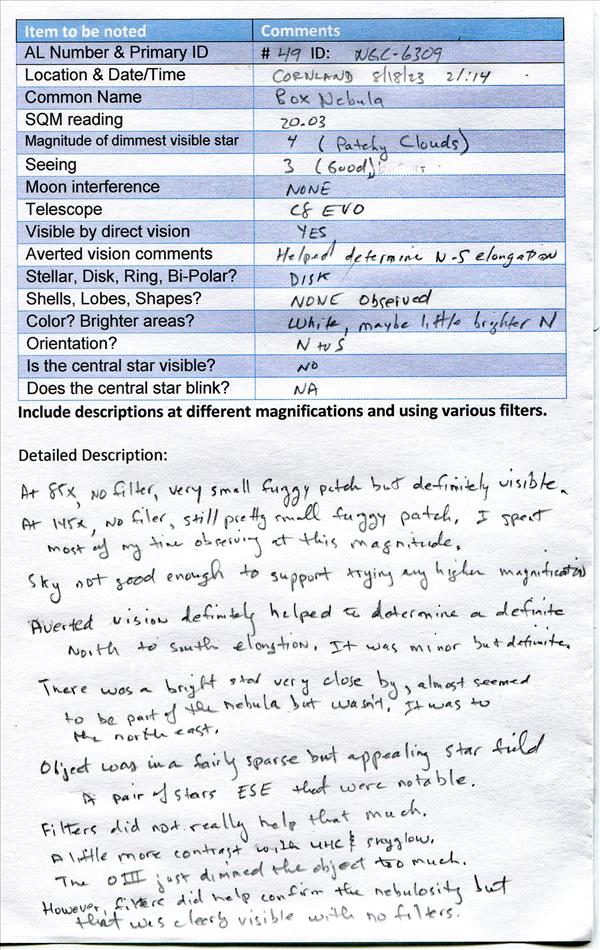 Item to be noted Comments
AL Number & Primary ID # 49 ID: NGC-6309
Location & Date/Time CORNLAND 8/18/23 21:14
Common Name Box Nebula
SQM reading 20.03
Magnitude of dimmest visible star 4 (Patchy Clouds)
Seeing 3 (Good)
Moon interference NONE
Telescope C8 EVO
Visible by direct vision YES
Averted vision comments Helped determine N-S elongation
Stellar, Disk, Ring, Bi-Polar? DISK
Shells, Lobes, Shapes? NONE Observed
Color? Brighter areas? White, maybe little brighter N
Orientation? N to S
Is the central star visible? NO
Does the central star blink? NA
Include descriptions at different magnifications and using various filters.
Detailed Description:
At 85x, no filter, very small fuzzy patch but definitely visible.
At 145x, no filer, still pretty small fuzzy patch. I spent
most of my time observing at this magnitude.
Sky not good enough to support trying any higher magnification
Averted vision definitely helped to determine a definite
North to south elongtion. It was minor but definite.
There was a bright star very close by, almost seemed
to be part of the nebula but wasn't. It was to
the north east.
Object was in a fairly sparse but appealing star field
A pair of stars ESE that were notable.
Filters did not really help that much.
A little more contrast with UHC & skyglow.
The OIII just dimmed the object too much.
However, filters did help confirm the nebulosity but
that was clearly visible with no filters.